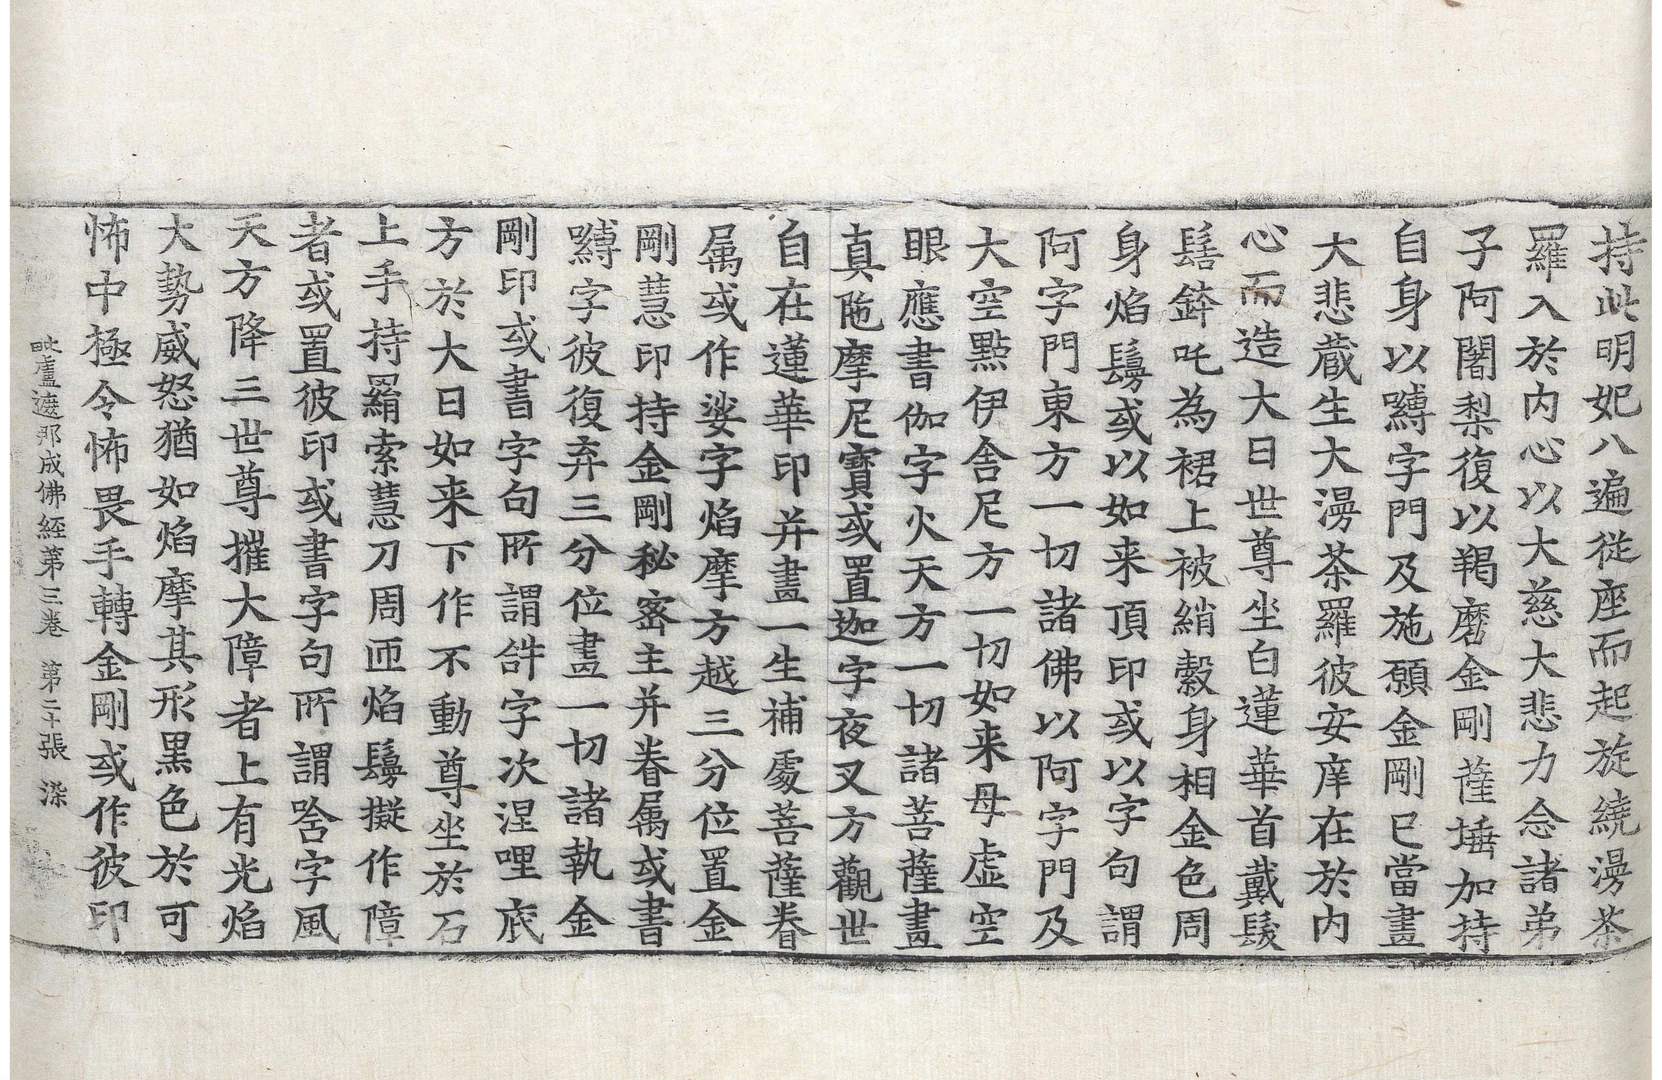 持此明妃八遍從座而起旋繞漫茶
羅入於内心以大慈大悲力念諸弟
子阿闍梨復以羯磨金剛薩埵加持
自身以嚩字門及施願金剛已當畫
大悲蔵生大漫茶羅彼安庠在於内
心而造大日世尊坐白蓮華首戴髮
髻鉢吒為裙上被綃縠身相金色周
身焰鬘或以如来頂印或以字句謂
阿字門東方一切諸佛以阿字門及
大空點伊舎尼方一切如来母虚空
眼應書伽字火天方一切諸菩薩畫
真陁摩尼寶或置迦字夜叉方觀世
自在蓮華印并畫一生補處菩薩眷
属或作娑字焰摩方越三分位置金
剛慧印持金剛秘宻主并眷属或書
嚩字彼復弃三分位畫一切諸執金
剛印或書字句所謂𤙖字次涅哩底
方於大日如来下作不動尊坐於石
上手持羂索慧刀周匝焰鬘擬作障
者或置彼印或書字句所謂唅字風
天方降三世尊摧大障者上有光焰
大勢威怒猶如焰摩其形黑色於可
怖中極令怖畏手轉金剛或作彼印
毗盧遮那成佛經第三卷 第二十張 染